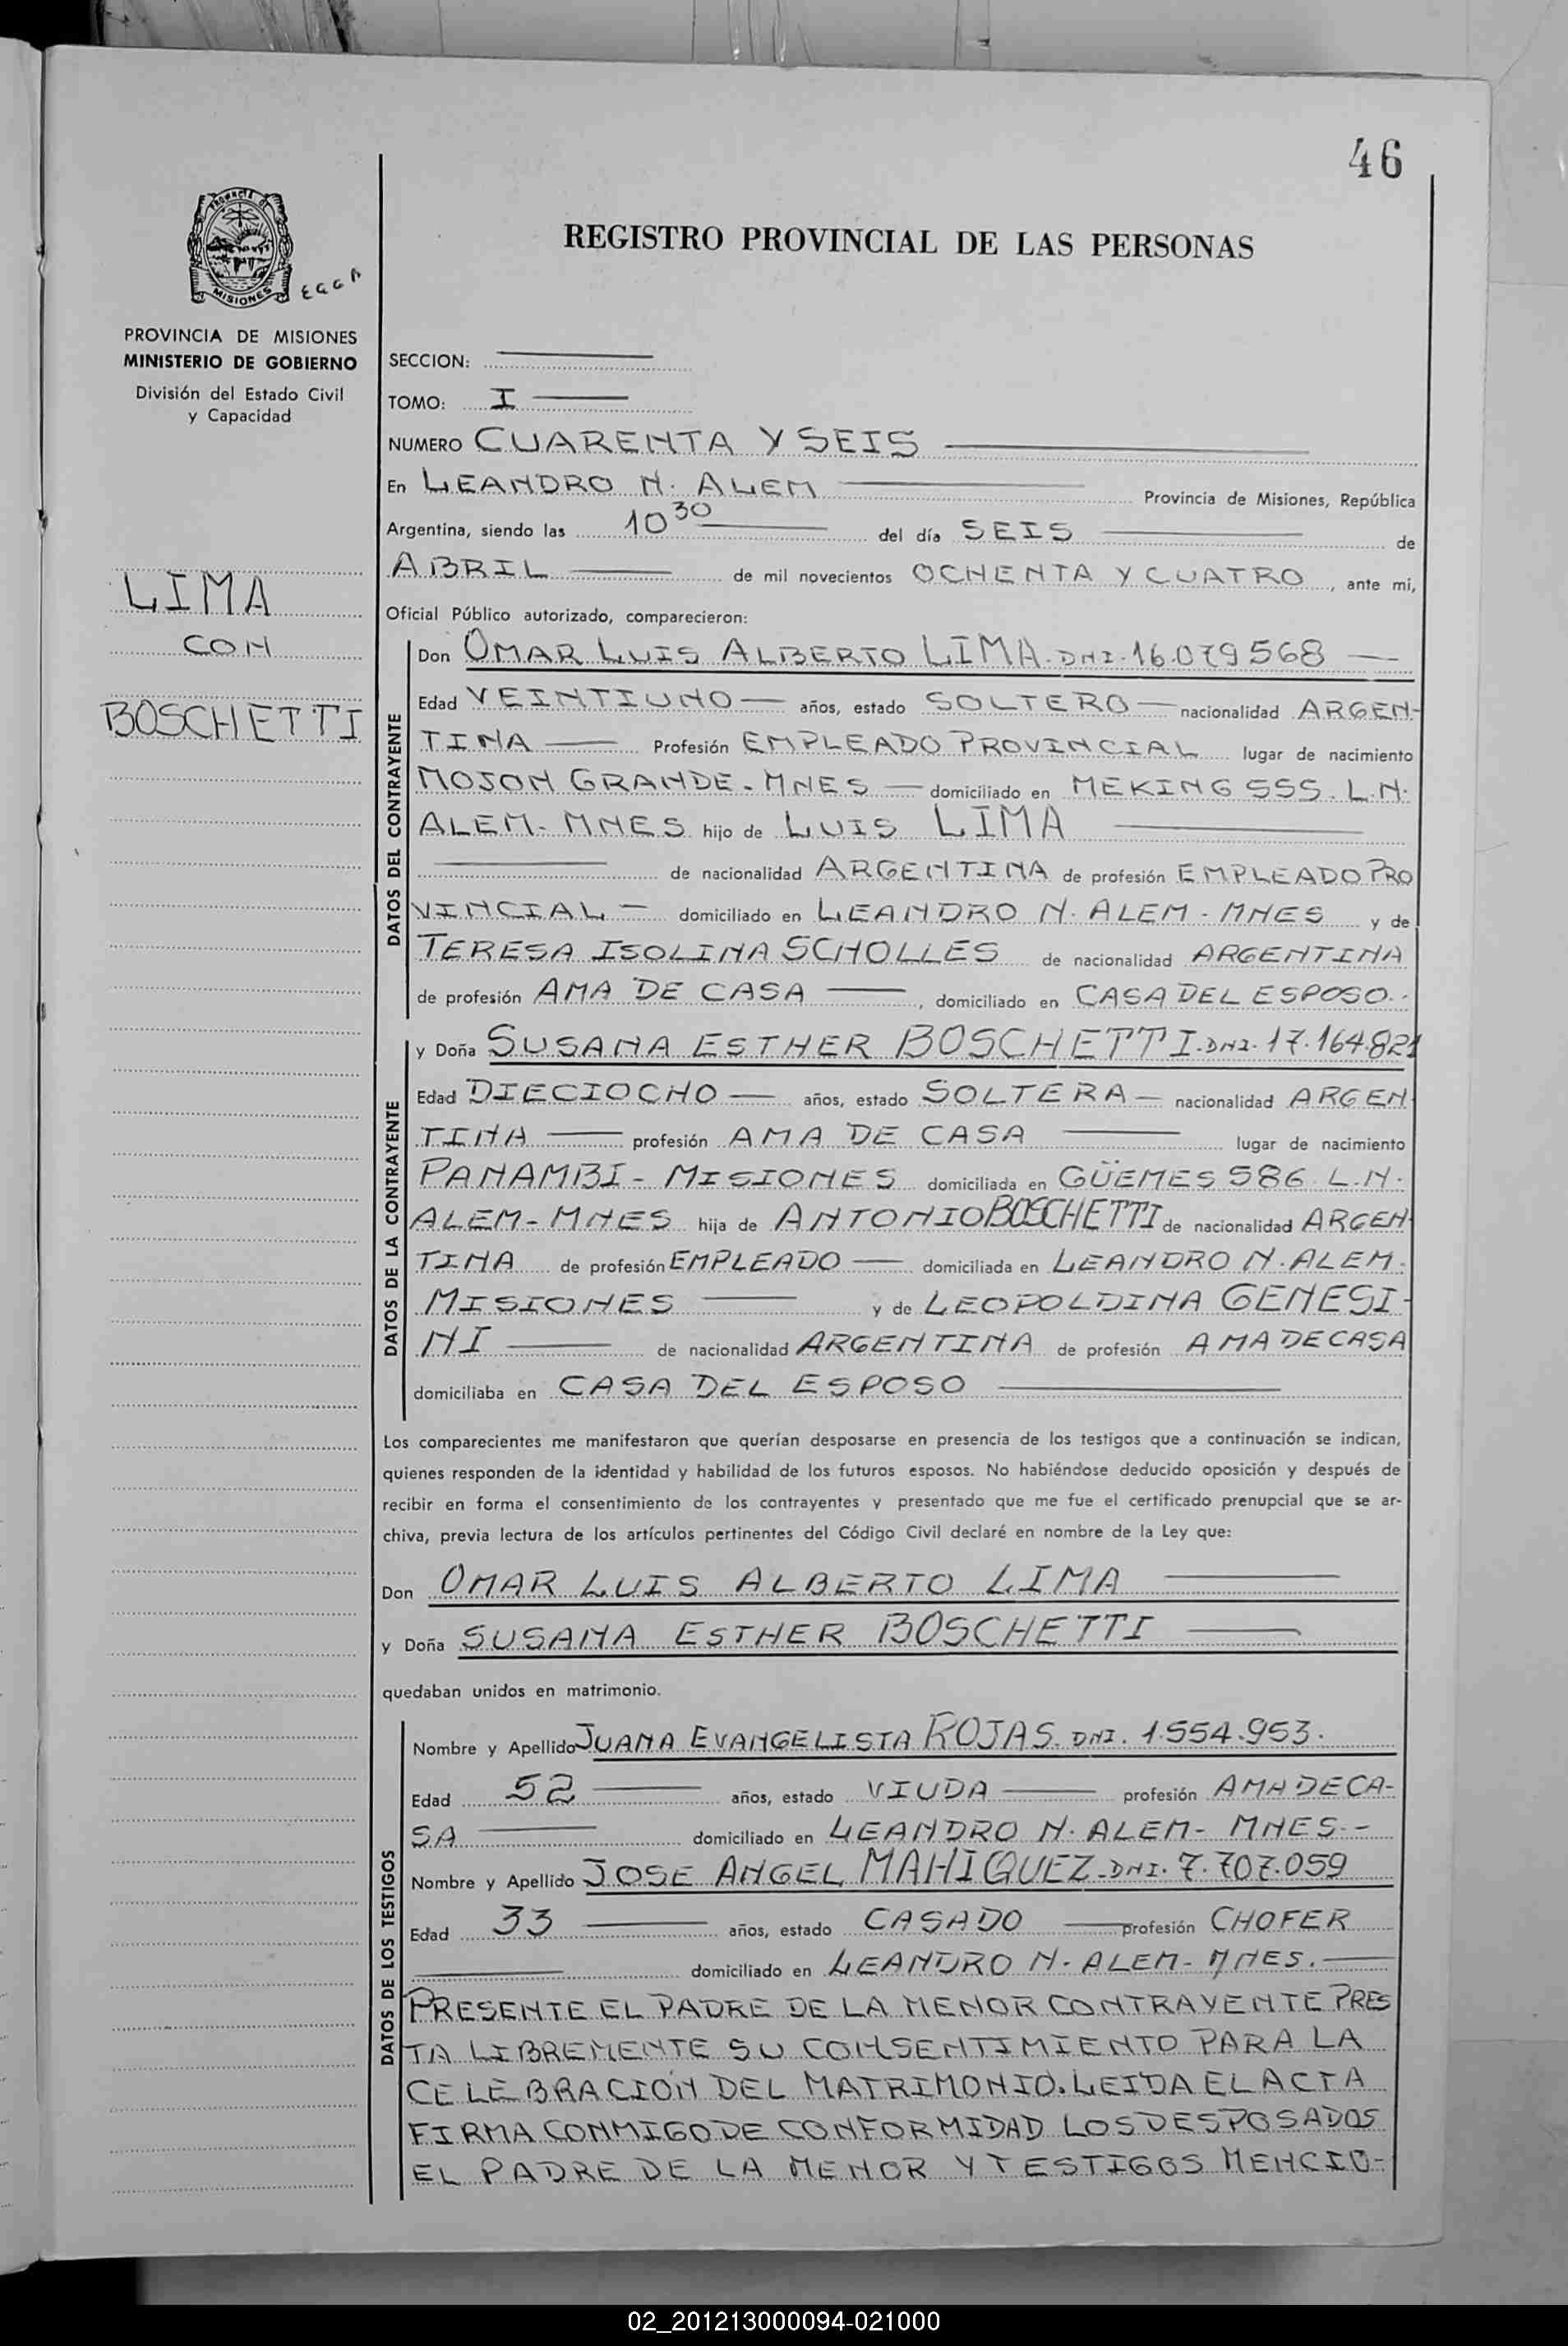 46
PROVINCIA DE
MISIONES
REGISTRO PROVINCIAL DE LAS PERSONAS
PROVINCIA DE MISIONES
MINISTERIO DE GOBIERNO
División del Estado Civil
y Capacidad
LIMA
CON
BOSCHETTI
SECCION:
TOMO: I
NUMERO CUARENTA Y SEIS
En LEANDRO N. ALEM Provincia de Misiones, República
Argentina, siendo las 10 30 del día SEIS de
ABRIL de mil novecientos OCHENTA Y CUATRO, ante mí,
Oficial Público autorizado, comparecieron:
DATOS DEL CONTRAYENTE
Don OMAR LUIS ALBERTO LIMA. DNI. 16.079568
Edad VEINTIUNO años, estado SOLTERO nacionalidad ARGEN-
TINA Profesión EMPLEADO PROVINCIAL lugar de nacimiento
MOJON GRANDE-MNES domiciliado en MEKING 555. L.N.
ALEM-MNES hijo de LUIS LIMA
de nacionalidad ARGENTINA de profesión EMPLEADO PRO
VINCIAL domiciliado en LEANDRO N. ALEM-MNES y de
TERESA ISOLINA SCHOLLES de nacionalidad ARGENTINA
de profesión AMA DE CASA, domiciliado en CASA DEL ESPOSO.
DATOS DE LA CONTRAYENTE
y Doña SUSANA ESTHER BOSCHETTI. DNI. 17.164.821
Edad DIECIOCHO años, estado SOLTERA nacionalidad ARGEN
TINA profesión AMA DE CASA lugar de nacimiento
PANAMBI-MISIONES domiciliada en GÜEMES 586 L.N.
ALEM-MNES hija de ANTONIO BOSCHETTI de nacionalidad ARGEN
TINA de profesión EMPLEADO domiciliada en LEANDRO N. ALEM.
MISIONES y de LEOPOLDINA GENESI-
NI de nacionalidad ARGENTINA de profesión AMA DE CASA
domiciliaba en CASA DEL ESPOSO
Los comparecientes me manifestaron que querían desposarse en presencia de los testigos que a continuación se indican,
quienes responden de la identidad y habilidad de los futuros esposos. No habiéndose deducido oposición y después de
recibir en forma el consentimiento de los contrayentes y presentado que me fue el certificado prenupcial que se ar-
chiva, previa lectura de los artículos pertinentes del Código Civil declaré en nombre de la Ley que:
Don OMAR LUIS ALBERTO LIMA
y Doña SUSANA ESTHER BOSCHETTI
quedaban unidos en matrimonio.
DATOS DE LOS TESTIGOS
Nombre y Apellido JUANA EVANGELISTA ROJAS. DNI. 1.554.953.
Edad 52 años, estado VIUDA profesión AMA DE CA-
SA domiciliado en LEANDRO N. ALEM-MNES.-
Nombre y Apellido JOSE ANGEL MAHIQUEZ-DNI. 7.707.059
Edad 33 años, estado CASADO profesión CHOFER
domiciliado en LEANDRO N. ALEM-MNES.
PRESENTE EL PADRE DE LA MENOR CONTRAYENTE PRES
TA LIBREMENTE SU CONSENTIMIENTO PARA LA
CELEBRACIÓN DEL MATRIMONIO. LEIDA EL ACTA
FIRMA CONMIGO DE CONFORMIDAD LOS DESPOSADOS
EL PADRE DE LA MENOR Y TESTIGOS MENCIO-
02_201213000094-021000